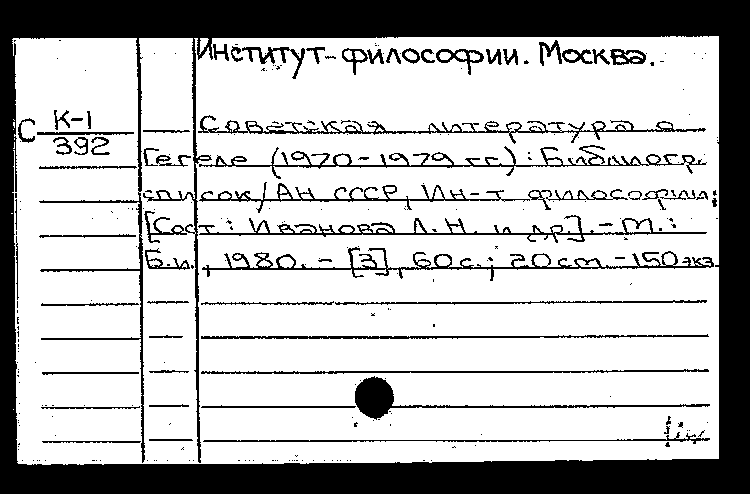 Институт философии. Москва.
С К-1
392
Советская литература о
Гегеле (1970-1979 гг.) : Библиогр.
список / АН СССР, Ин-т философии;
[Сост.: Иванова Л. Н. и др.]. - М.:
Б.и., 1980. - [3], 60 с.; 20 cm - 150 экз